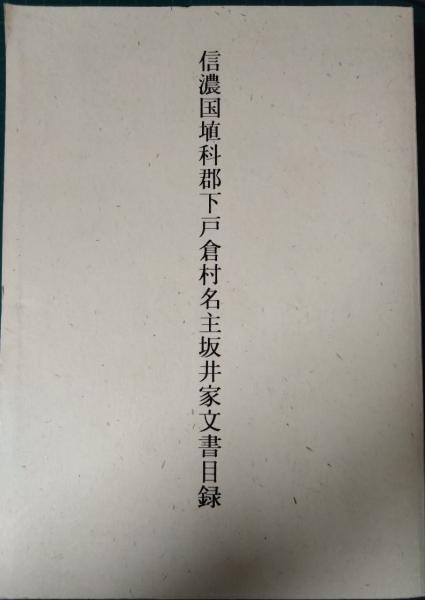 信濃国埴科郡下戸倉村名主坂井家文書目録